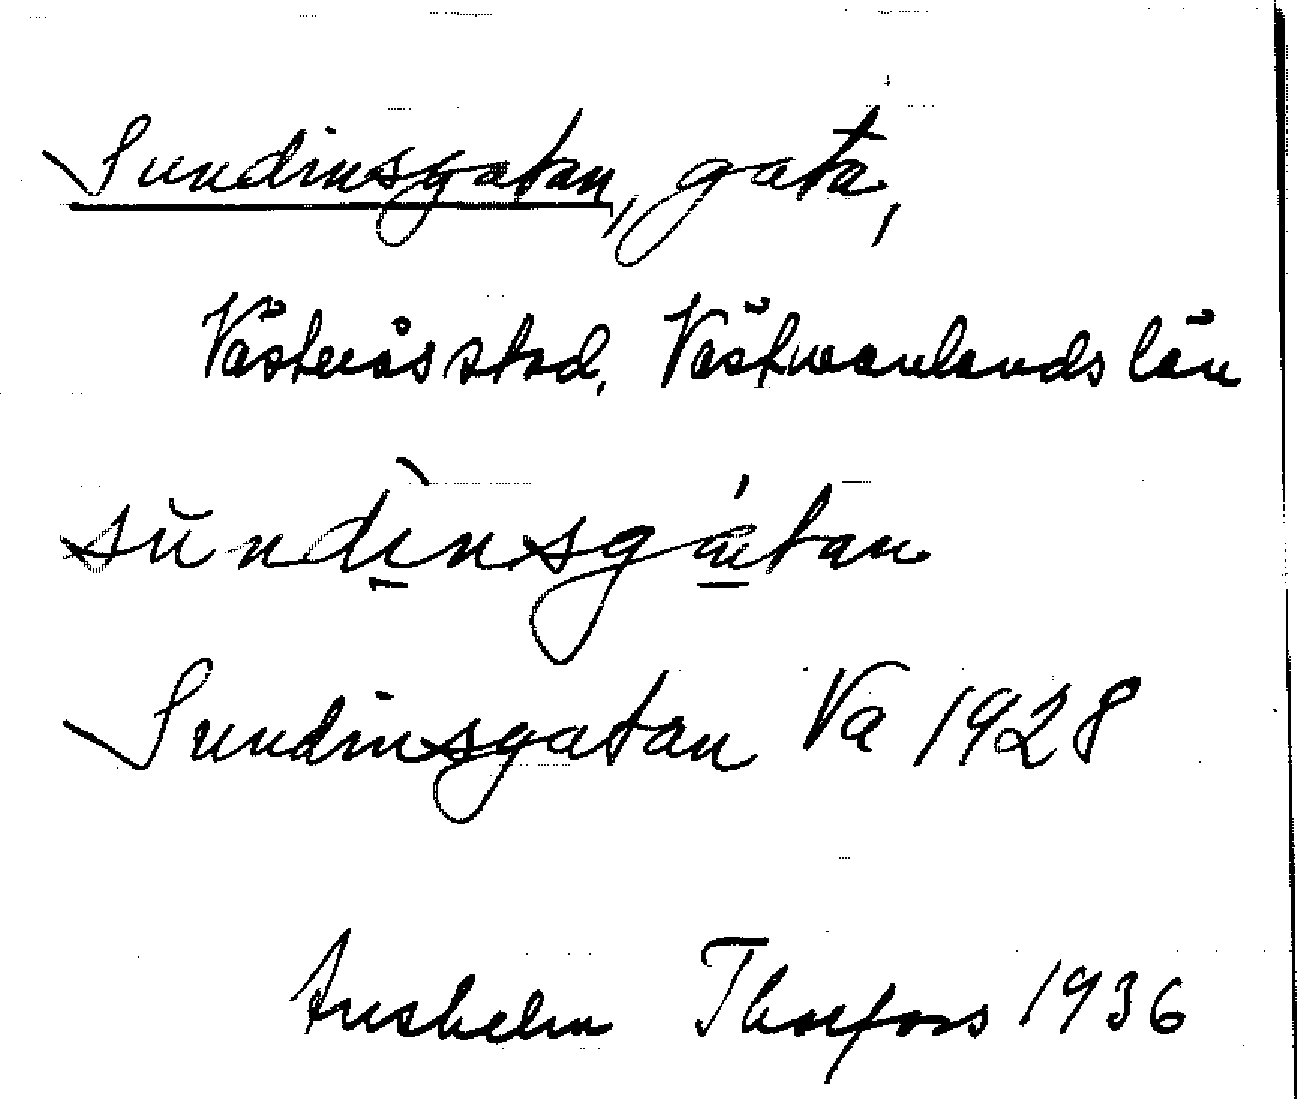 Sundinsgatan, gata,
Västerås stad, Västmanlands län
sŭndìnsgátan
Sundinsgatan Va 1928
Anshelm Thorfors 1936